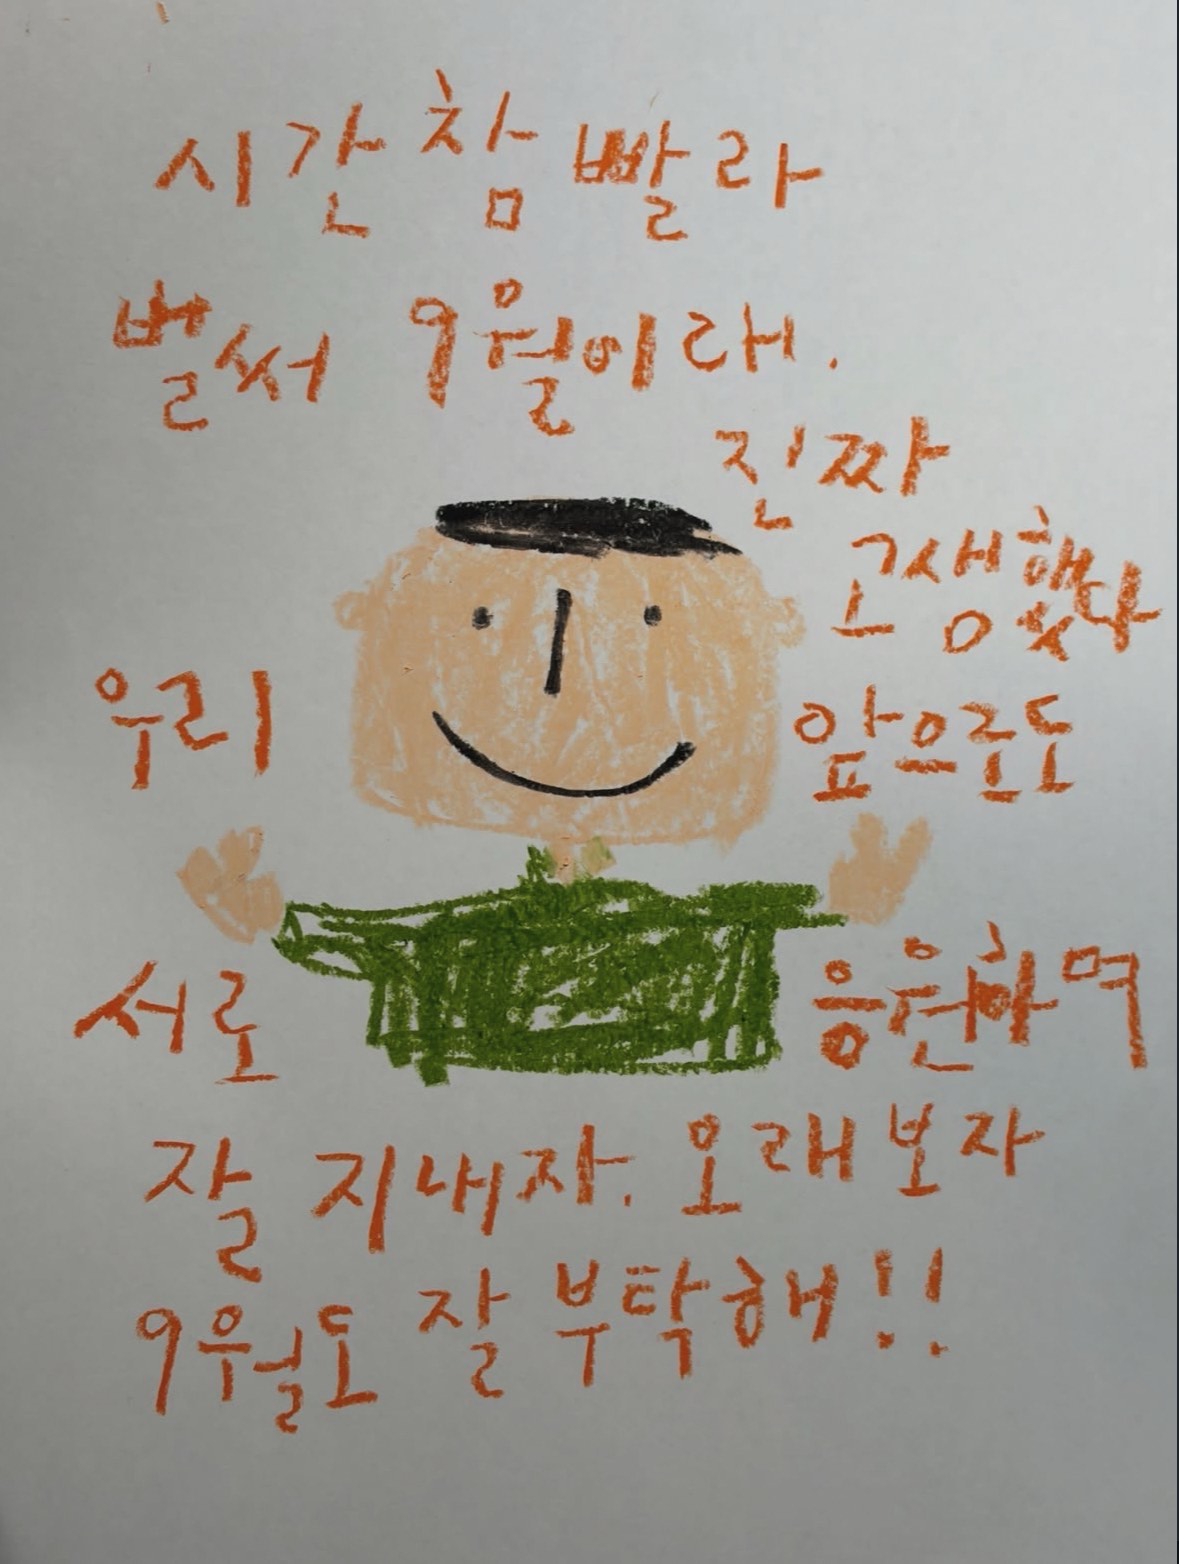 시간 참 빨라
벌써 9월이래.
진짜
고생했다
우리 앞으로도
서로 응원하며
잘 지내자. 오래 보자
9월도 잘 부탁해!!